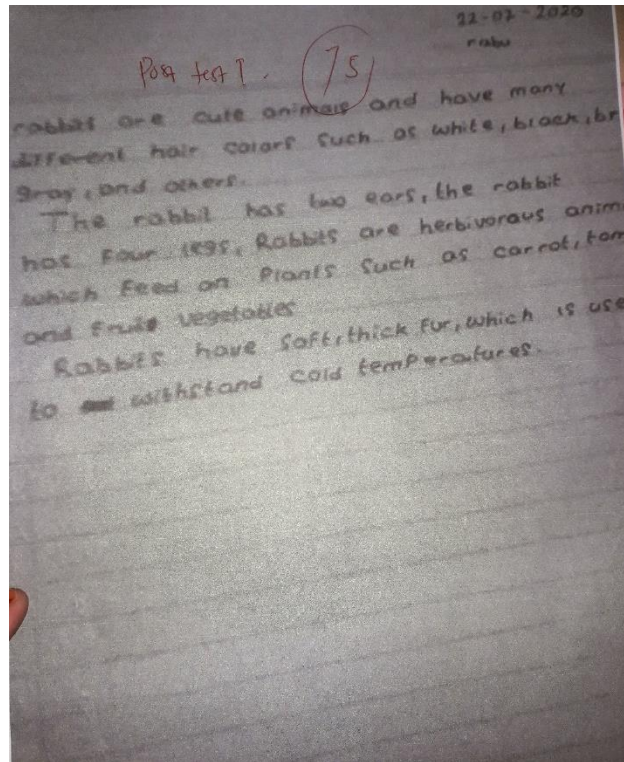 22-07-2020
rabu
Post test I. 75
rabbits are cute animals and have many
different hair colors such as white, black, br
gray, and others.
The rabbit has two ears, the rabbit
has four legs, Rabbits are herbivorous anim
which feed on Plants Such as carrot, tom
and fruit vegetables
Rabbits have soft, thick fur, which is use
to withstand cold temperatures.